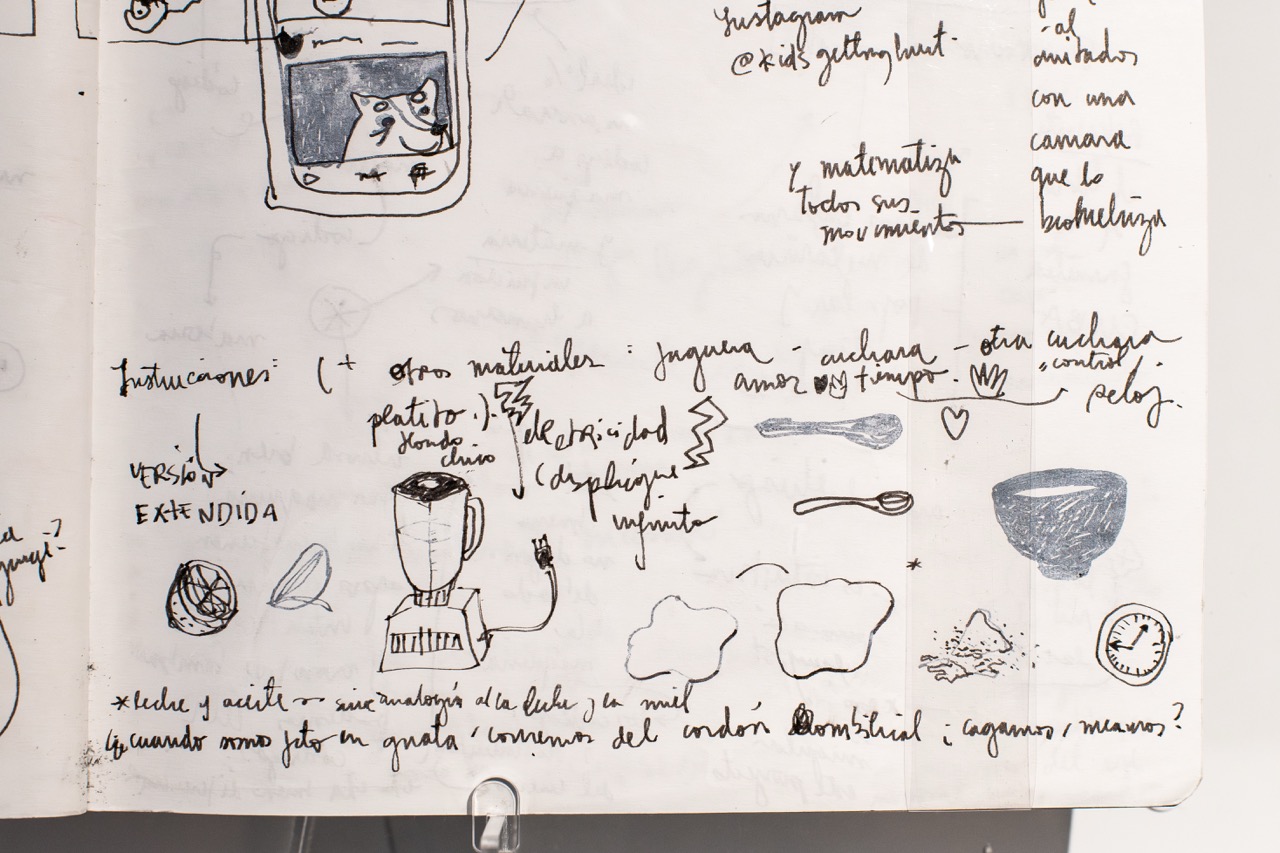 Instagram
@kids getting hurt
al
con una
camara
que lo
biometriza
y matematiza
todos sus
movimientos
Instrucciones: (+ otros materiales : juguera - cuchara - otra cuchara
amor tiempo. "control". reloj.
platito.).
Hondo
chico
electricidad
(despliegue
infinito
VERSIÓN
EXTENDIDA
*Leche y aceite analogía a la leche y la miel
¿cuando somos feto en guata, comemos del cordón ¿cagamos, meamos?